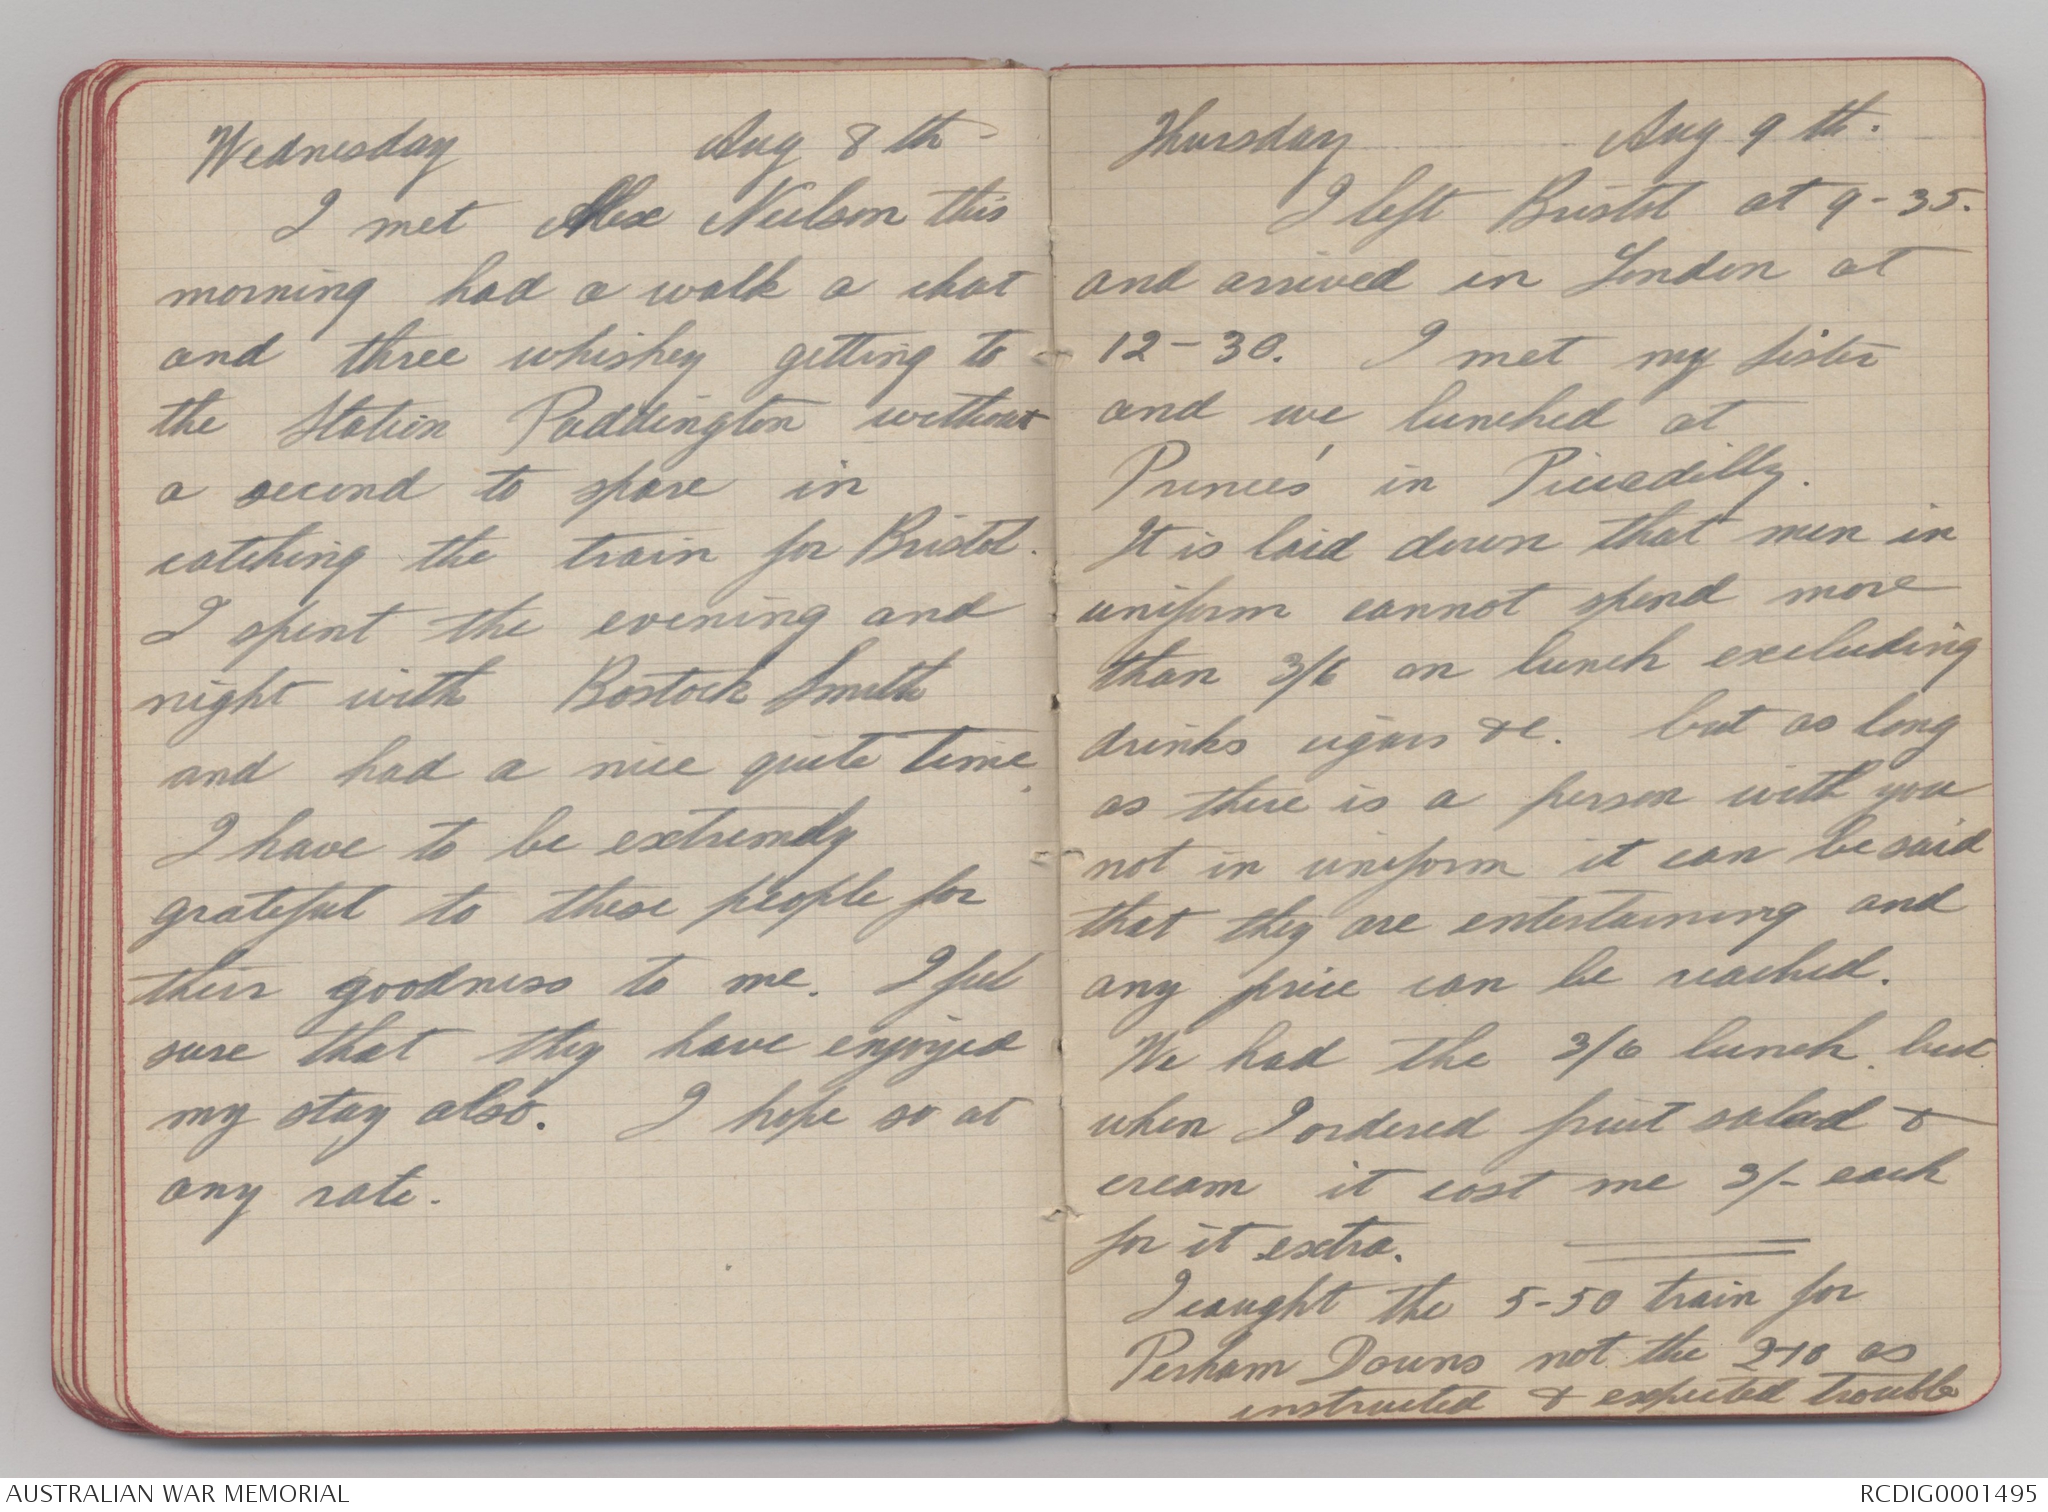 Wednesday Aug 8th
I met Alex Neilson this
morning had a walk a chat
and three whiskey getting to
the Station Paddington without
a second to spare in
catching the train for Bristol.
I spent the evening and
night with Bostock Smith
and had a nice quite time.
I have to be extremely
grateful to these people for
their goodness to me. I feel
sure that they have enjoyed
my stay also. I hope so at
any rate.
Thursday Aug 9th.
I left Bristol at 9-35.
and arrived in London at
12-30. I met my sister
and we lunched at
Princes' in Piccadilly.
It is laid down that men in
uniform cannot spend more
than 3/6 on lunch excluding
drinks cigars &c. but as long
as there is a person with you
not in uniform it can be said
that they are entertaining and
any price can be reached.
We had the 3/6 lunch. but
when I ordered fruit salad &
cream it cost me 3/- each
for it extra.
I caught the 5-50 train for
Perham Downs not the 2-10 as
instructed & expected trouble
AUSTRALIAN WAR MEMORIAL
RCDIG0001495